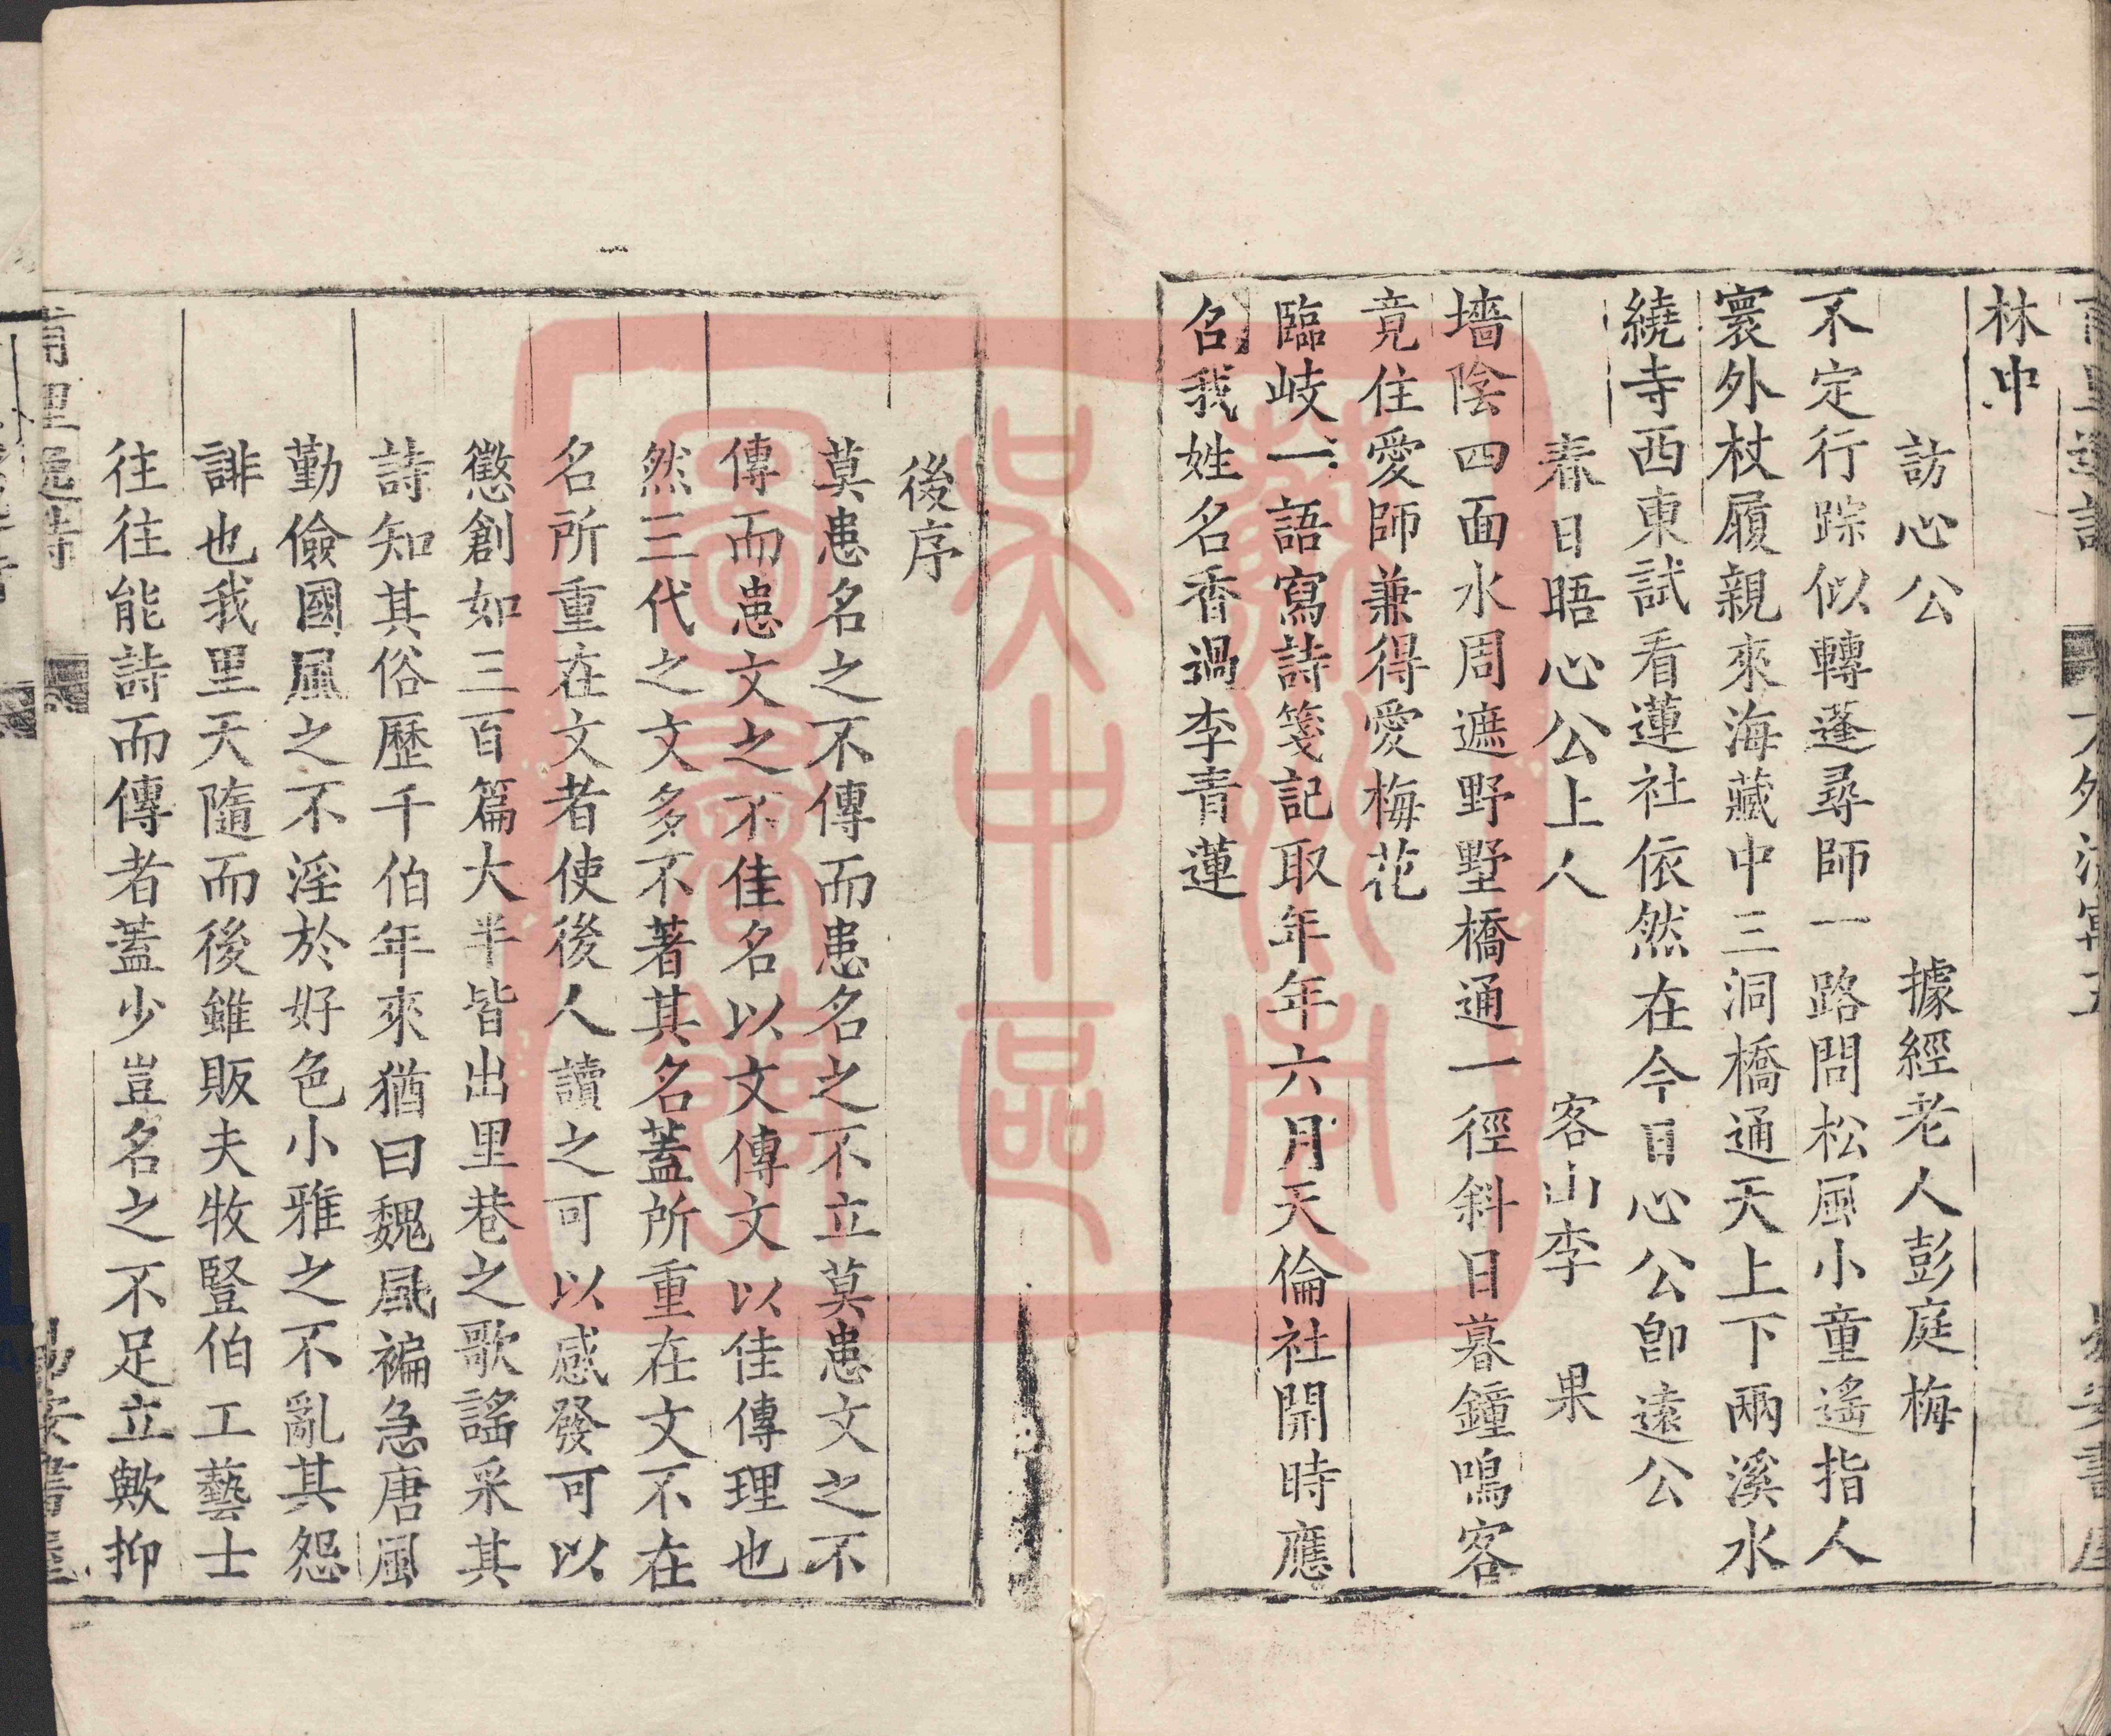 林中
訪心公 據經老人彭庭梅
不定行踪似轉蓬尋師一路問松風小童遙指人
寰外杖履親來海藏中三洞橋通天上下兩溪水
繞寺西東試看蓮社依然在今日心公卽遠公
春日晤心公上人 客山李果
墻陰四面水周遮野墅橋通一徑斜日暮鐘鳴客
竟住愛師兼得愛梅花
臨岐一語寫詩箋記取年年六月天倫社開時應
名我姓名香過李青蓮
後序
莫患名之不傳而患名之不立莫患文之不
傳而患文之不佳名以文傳文以佳傳理也
然三代之文多不著其名蓋所重在文不在
名所重在文者使後人讀之可以感發可以
懲創如三百篇大半皆出里巷之歌謠采其
詩知其俗歷千伯年來猶曰魏風褊急唐風
勤儉國風之不淫於好色小雅之不亂其怨
誹也我里天隨而後雖販夫牧豎伯工藝士
往往能詩而傳者蓋少豈名之不足立歟抑
甫里逸詩
蘇州市
吳中區
圖書館